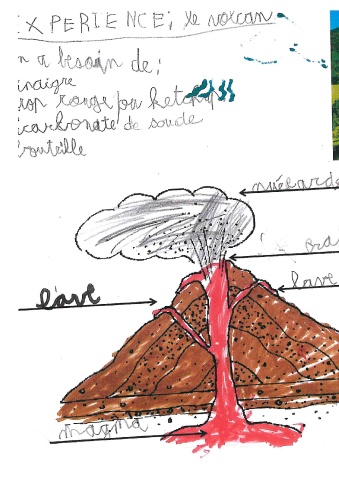 EXPERIENCE: le volcan
n a besoin de:
inaigre
rop rouge ou ketchup
icarbonate de soude
outeille
nuécarde
cra
lave
l'ave
magma